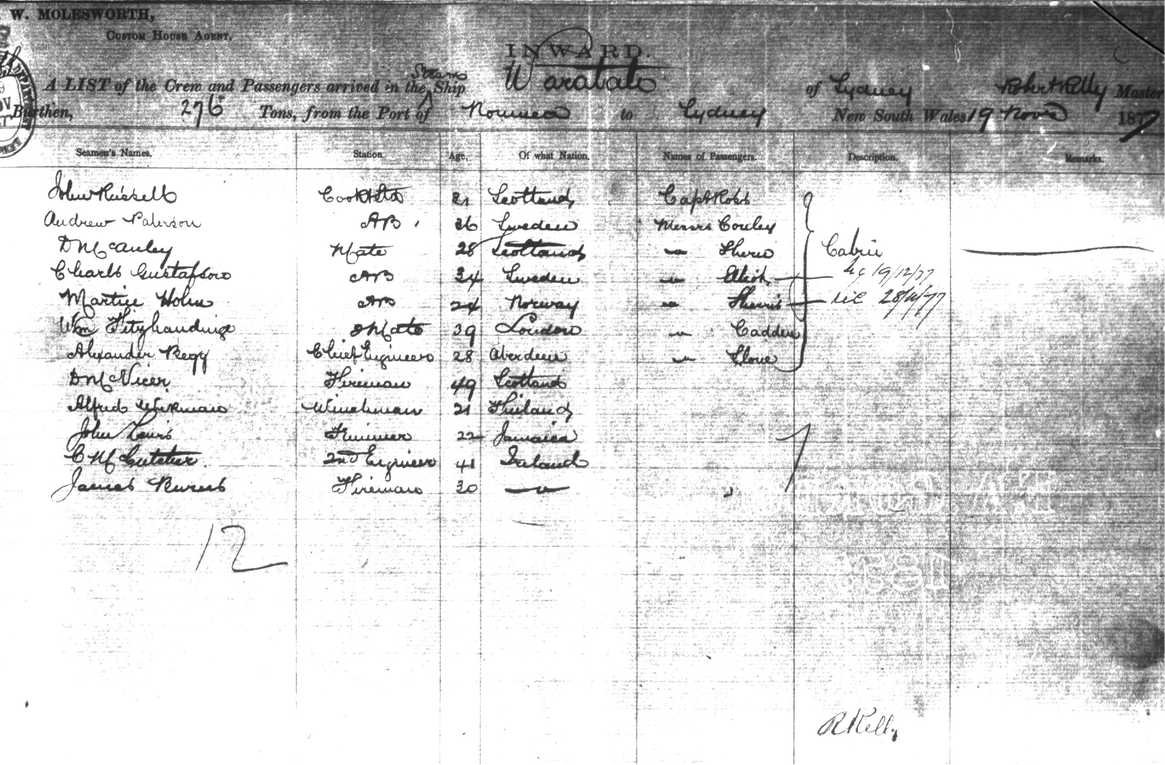 W. MOLESWORTH,
CUSTOM HOUSE AGENT.
INWARD.
A LIST of the Crew and Passengers arrived in the Steam Ship Waratah of Sydney Robert Kelly Master
Burthen, 276 Tons, from the Port of Noumea to Sydney New South Wales 19 Novr 1877
Seamen's Names. Station. Age. Of what Nation. Names of Passengers. Description. Remarks.
John Russell Cook & Std 21 Scotland Capt Robb
Andrew Paterson AB 36 Sweden Messrs Couley
D McAuley Mate 28 Scotland " Cabin
Charls Gustafson AB 24 Sweden " 19/12/77
Martin Holm AB 24 Norway " 28/11/77
Wm Fitzhardinge 2 Mate 39 London " Cadden
Alexander Begg Chief Engineer 28 Aberdeen "
D McVicer Fireman 49 Scotland
Alfred Winchman 21
John Lewis Trimmer 22 Jamaica
C McCutcher 2nd Engineer 41 Ireland
James Burns Fireman 30 "
7
12
R Kelly